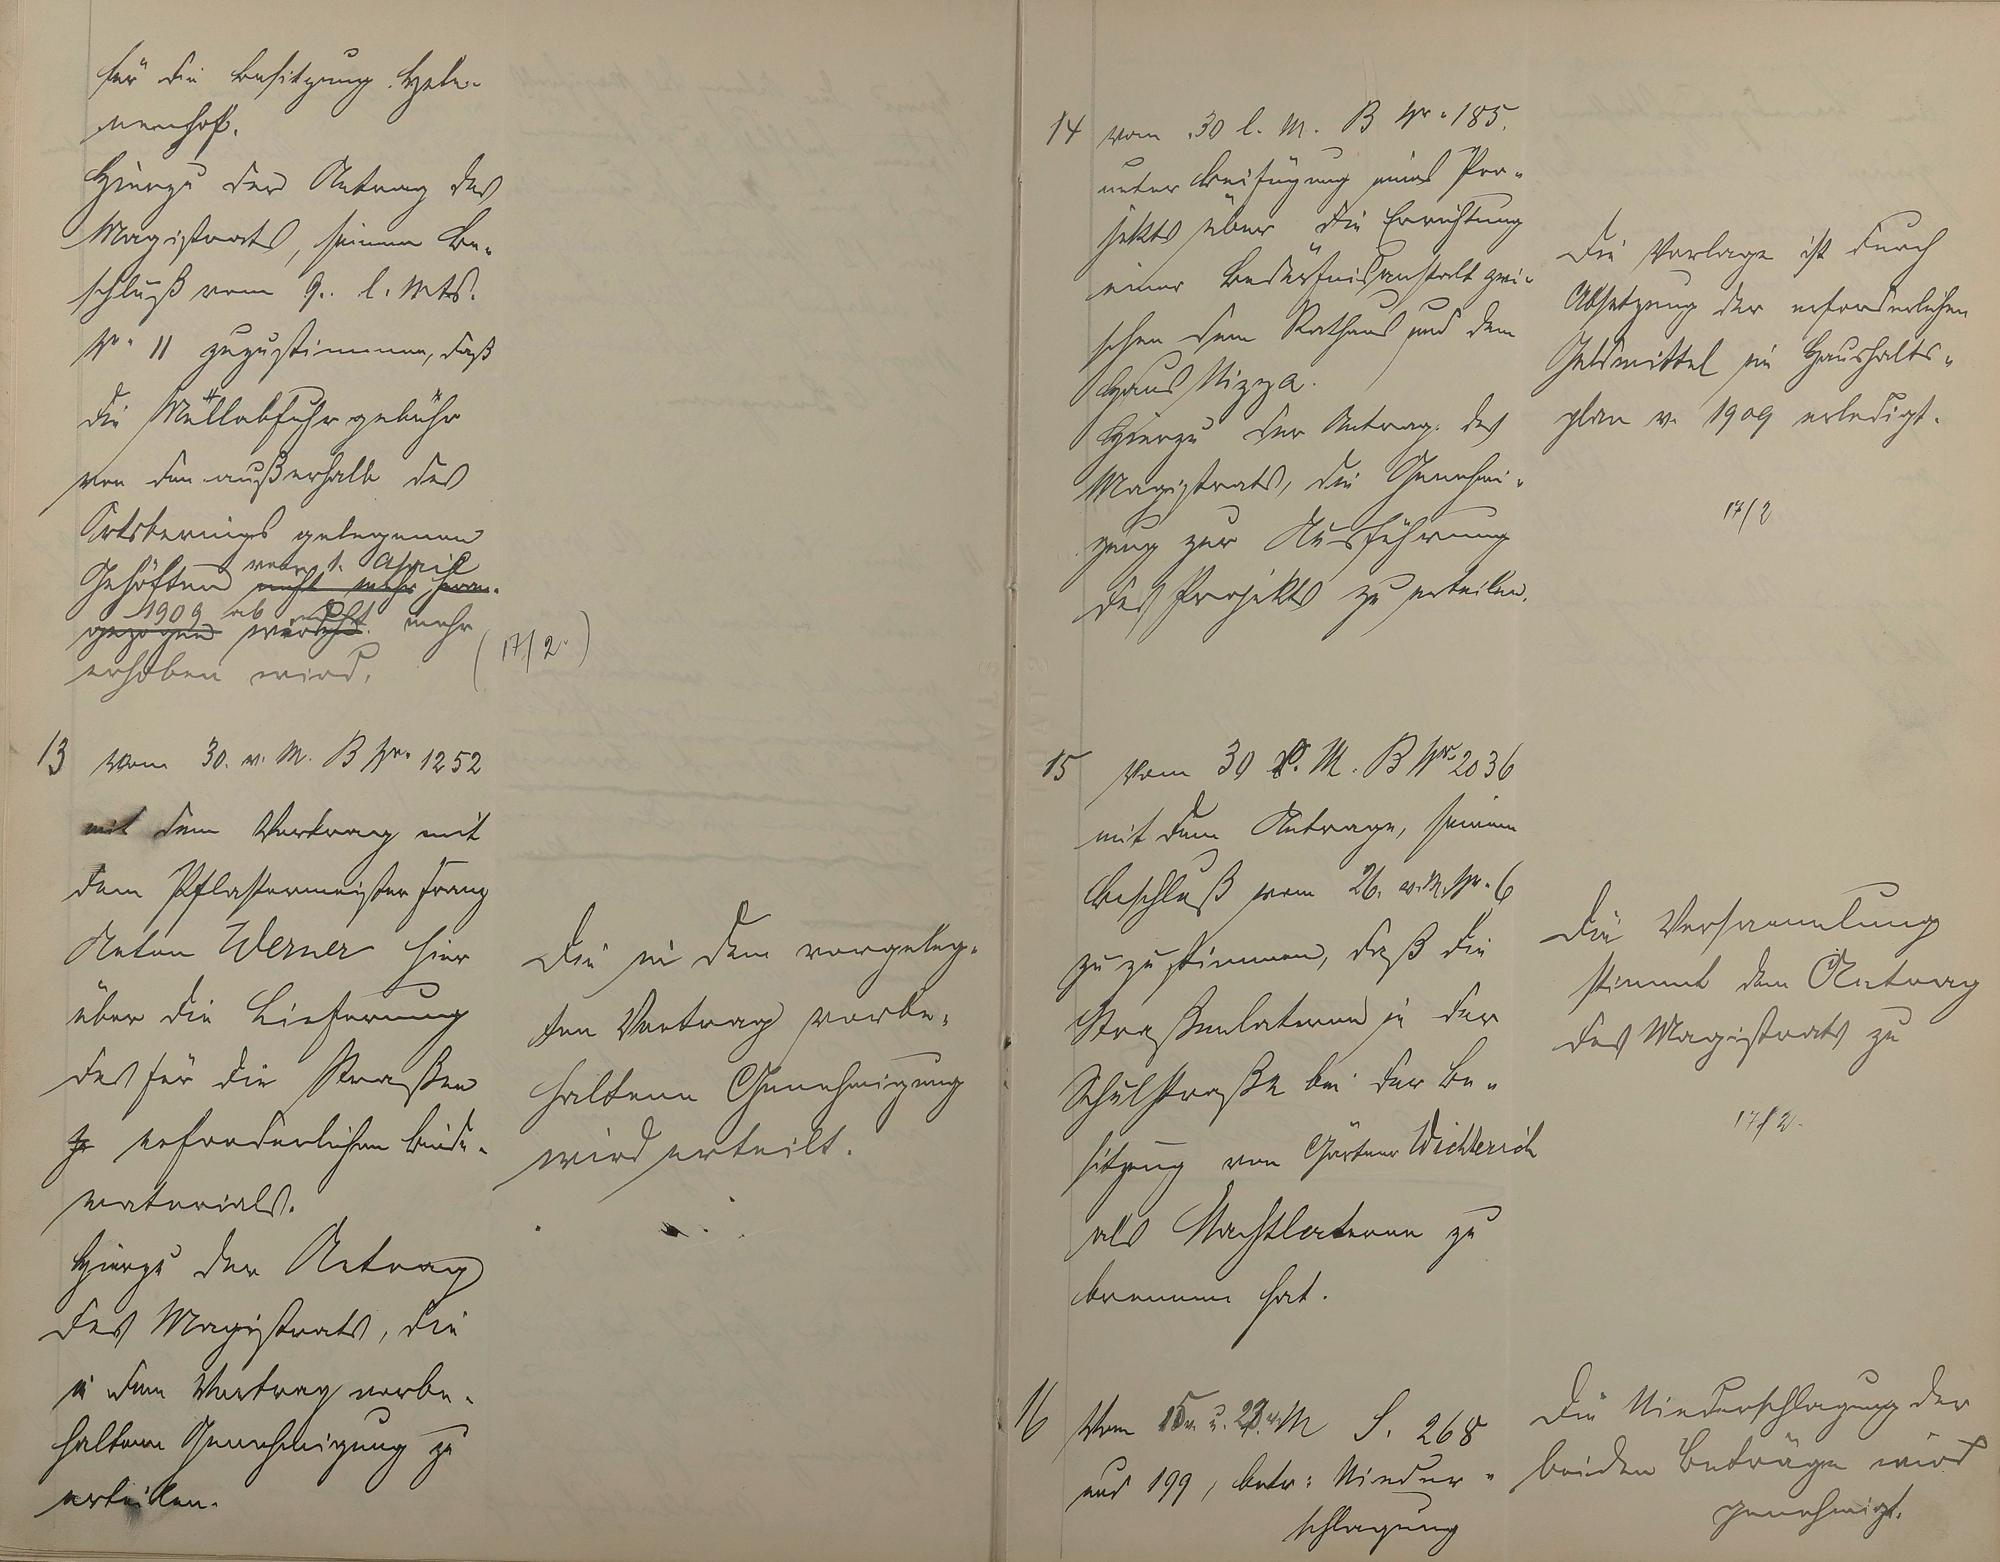 für die Besitzung Hele-
nenhof.
Hierzu der Antrag des
Magistrats, seinem Be-
schluß vom 9. l. Mts.
Nr. 11 zuzustimmen, daß
die Müllabfuhrgebühr
von den außerhalb des
Ortsberings gelegenen
Gehöften nicht mehr heran-
vom 1. April
gezogen werden. mehr
1909 ab nicht
erhoben wird.
(17/2.)
13 vom 30. v. M. B Nr. 1252
mit dem Vertrag mit
dem Pflastermeister Franz
Anton Werner hier
über die Lieferung
des für die Straßen
erforderlichen Binde-
materials.
Hierzu der Antrag
des Magistrats, die
in dem Vertrag vorbe-
haltene Genehmigung zu
erteilen.
Die in dem vorgeleg-
ten Vertrag vorbe-
haltene Genehmigung
wird erteilt.
14 vom 30 l. M. B Nr. 185.
unter Beifügung eines Pro-
jekts über die Errichtung
einer Bedürfnisanstalt zwi-
schen dem Rathaus und dem
Haus Nizza.
Hierzu der Antrag des
Magistrats, die Genehmi-
gung zur Ausführung
des Projekts zu erteilen.
Die Vorlage ist durch
Absetzung der erforderlichen
Geldmittel im Haushalts-
plan v. 1909 erledigt.
17/2
15 vom 30 v. M. B Nr. 2036
mit dem Antrage, seinem
Beschluß vom 26. v. M. Nr. 6
zuzustimmen, daß die
Straßenlaterne in der
Schulstraße bei der Be-
sitzung von Gärtner Wichterich
als Nachtlaterne zu
brennen hat.
Die Versammlung
stimmt dem Antrag
des Magistrats zu
17/2.
16 Vom 15. u. 23. v. M S. 268
und 199, betr: Nieder-
schlagung
Die Niederschlagung der
beiden Beträge wird
genehmigt.